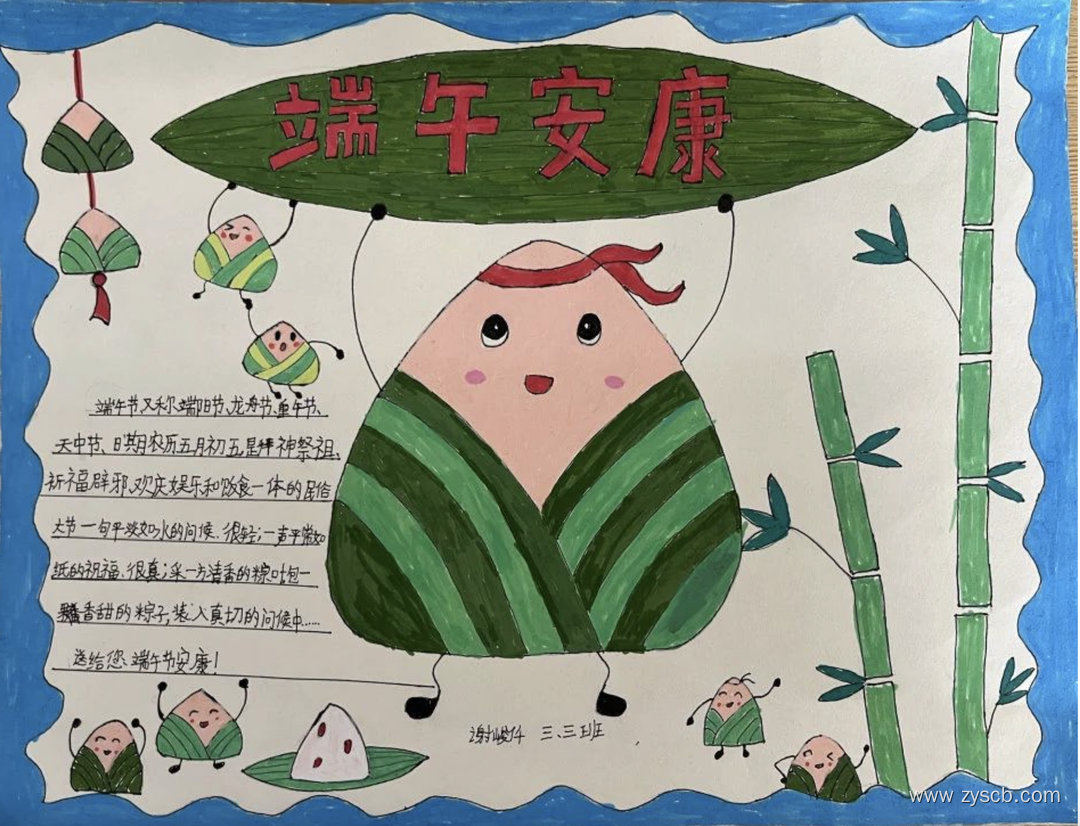 端午安康
端午节又称端阳节、龙舟节、重午节、
天中节、日期农历五月初五,是拜神祭祖、
祈福辟邪、欢庆娱乐和饭食一体的民俗
大节一句平淡如水的问候、很轻;一声平常如
纸的祝福、很真;采一方清香的粽叶包一
香甜的粽子,装入真切的问候中……
送给您:端午节安康!
谢 三、三班
www zyscb.com